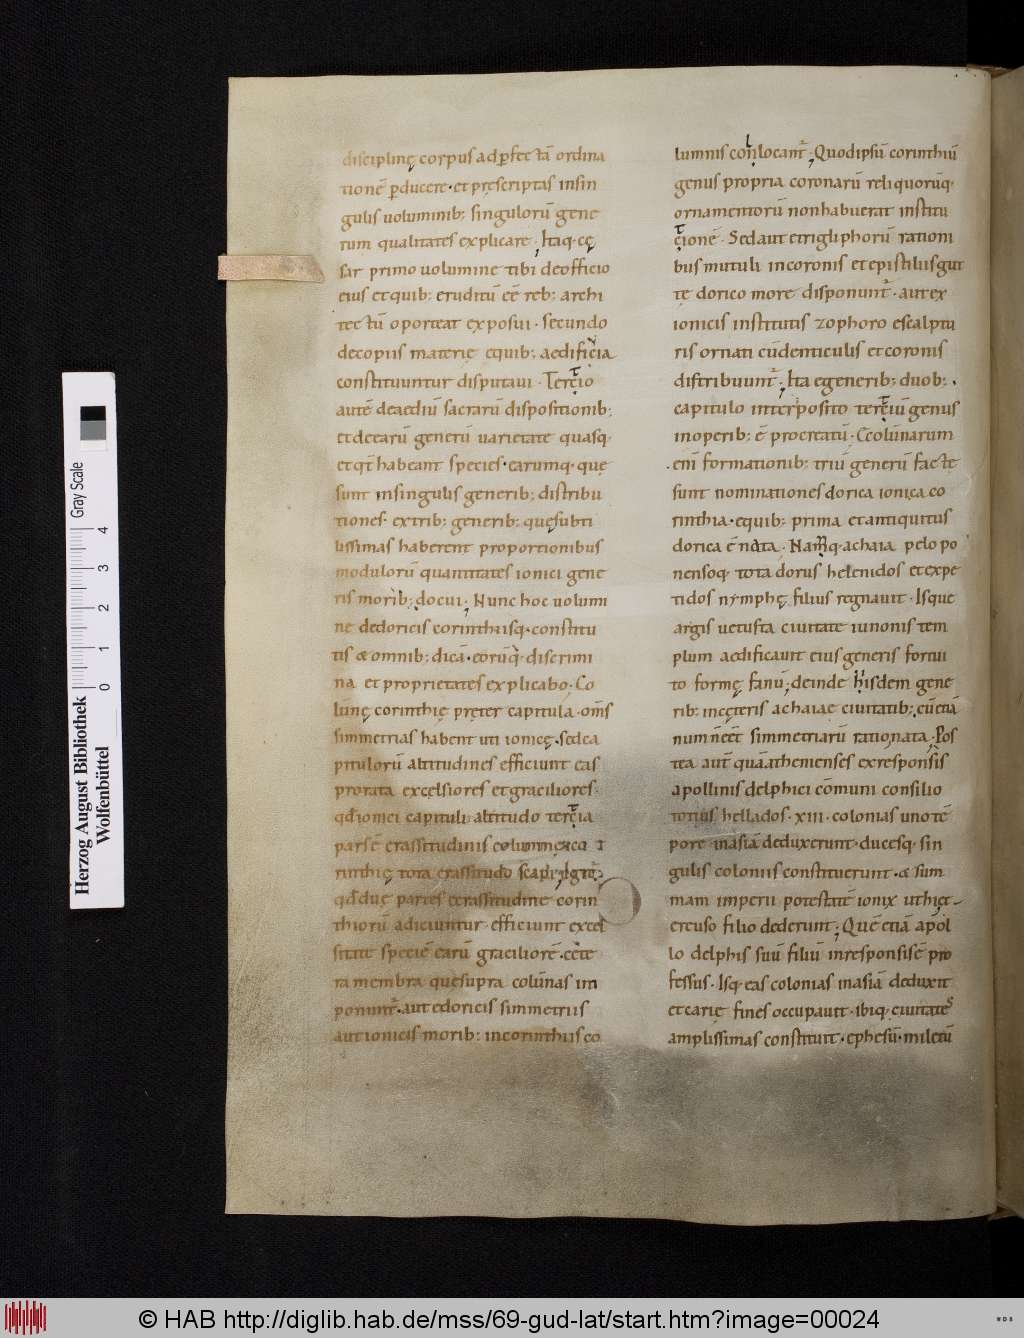 disciplinę corpus ad ꝑfectā ordina
tionē ꝑducere · et pręscriptas insin
gulis uoluminib; singulorū gene
rum qualitates explicare · Itaq· cę
sar primo uolumine tibi deofficio
eius et quib; eruditū eē reb; archi
tectū oporteat exposui · secundo
decopiis materię equib; aedificia
constituuntur disputaui · Tercio
autē deaediū sacrarū dispositionib;
et deearū generū uarietate quasq·
et qt̄ habeant species · earumq· quę
sunt insingulis generib; distribu
tiones · extrib; generib; quęsubti
lissimas haberent proportionibus
modulorū quantitates ionici gene
ris morib; docui · Nunc hoc uolumi
ne dedoricis corinthiisq· constitu
tis & omnib; dicā · eorūq· discrimi
na et proprietates explicabo · Co
lunę corinthię pręter capitula · om̄s
simmetrias habent uti ionicę · sedca
pitulorū altitudines efficiunt eas
prorata excelsiores et graciliores ·
qd̄ ionici capituli altitudo tercia
pars ē crassitudinis columnę · co
rinthię tota crassitudo scapi
qd̄ duę partes ecrassitudine corin
thiorū adiciuntur · efficiunt excel
sitate speciē earū graciliorē · cęte
ra membra quęsupra colūnas im
ponunt̄ · aut edoricis simmetriis
aut ionicis morib; incorinthiis co
lumnis conlocant̄ · Quodipsū corinthiū
genus propria coronarū reliquorūq·
ornamentorū nonhabuerat institu
cionē · Sedaut etrigliphorū rationi
bus mutuli incoronis et epistiliis gut
te dorico more disponunt̄ · aut ex
ionicis institutis zophoro escalptu
ris ornati cūdenticulis et coronis
distribuunt̄ · Ita egenerib; duob;
capitulo interposito terciū genus
inoperib; ē procreatū · Ccolūnarum
enī formationib; triū generū factę
sunt nominationes dorica ionica co
rinthia · equib; prima et antiquitus
dorica ē nata · Namq· achaia pelopo
nensoq· tota dorus helenidos et expe
tidos nymphę filius regnauit · Isque
argis uetusta ciuitate iunonis tem
plum aedificauit eius generis fortui
to formę fanū · deinde hisdem gene
rib; incęteris achaiae ciuitatib; cū etiā
num n̄ eēt simmetriarū ratio nata · Pos
tea aut̄ quā athenienses exresponsis
apollinis delphici cōmuni consilio
totius hellados · xiii · colonias unotē
pore inasiā deduxerunt · ducesq· sin
gulis coloniis constituerunt · & sum
mam imperii potestatē ionix uthiet
ercuso filio dederunt · Quē etiā apol
lo delphis suū filiū inresponsis ē pro
fessus · Isq· eas colonias inasiā deduxit
et carię fines occupauit · ibiq· ciuitates
amplissimas constituit · ephesū · miletū
Herzog August Bibliothek
Wolfenbüttel
0 1 2 3 4
Gray Scale
© HAB http://diglib.hab.de/mss/69-gud-lat/start.htm?image=00024